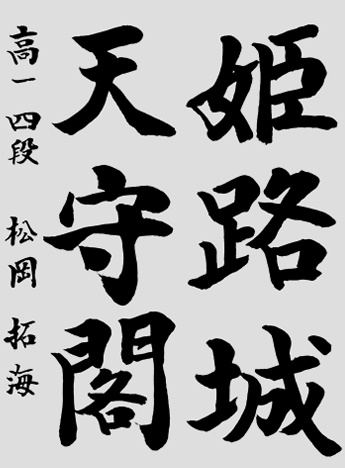 姫路城
天守閣
高一 四段 松岡 拓海